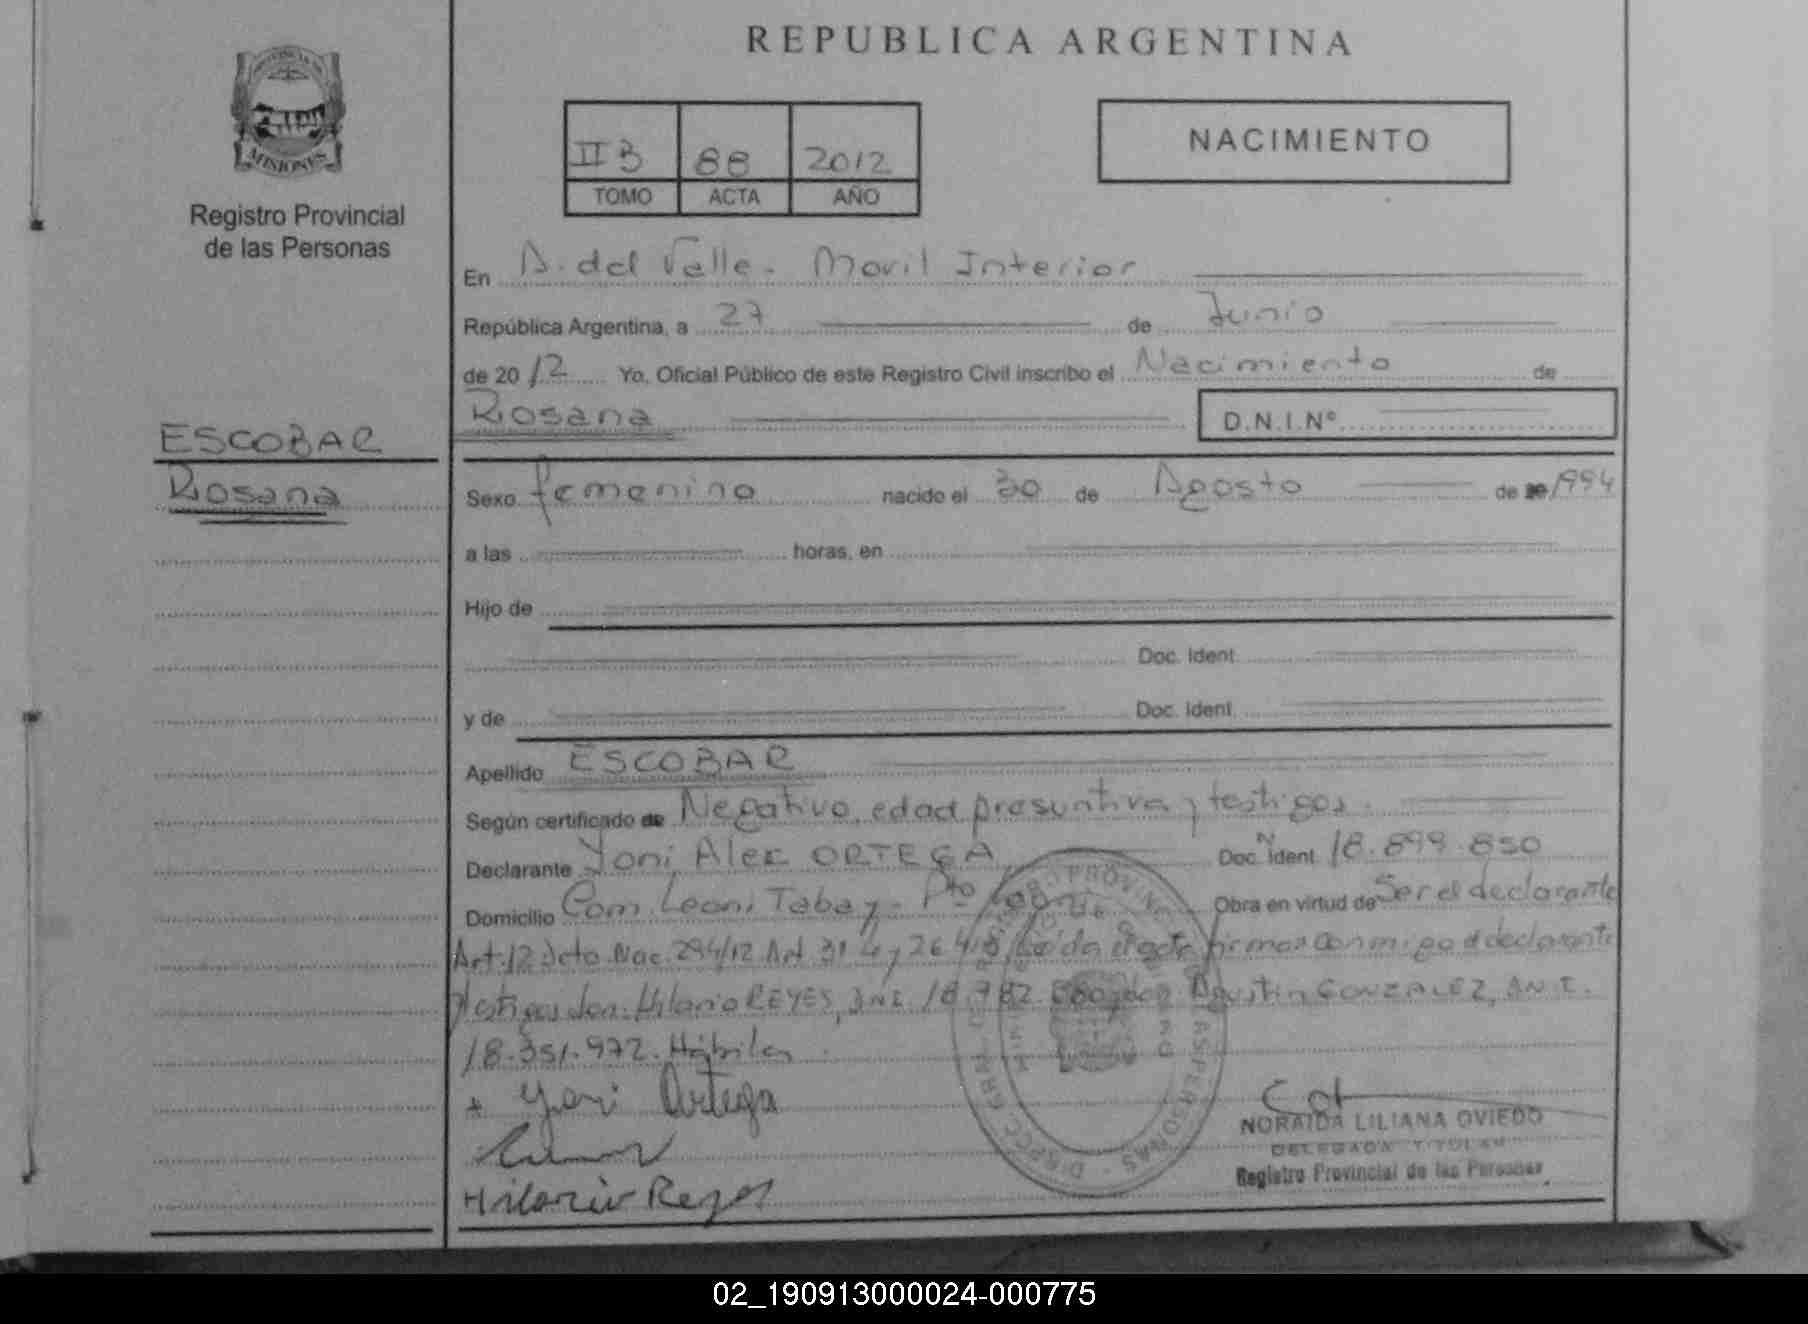 REPUBLICA ARGENTINA
PROVINCIA DE
MISIONES
Registro Provincial
de las Personas
II B 88 2012
TOMO ACTA AÑO
NACIMIENTO
En A. del Valle - Movil Interior
República Argentina, a 27 de Junio
de 2012 Yo, Oficial Público de este Registro Civil inscribo el Nacimiento de
Rosana D.N.I.Nº
ESCOBAR
Rosana
Sexo femenino nacido el 30 de Agosto de 1994
a las horas, en
Hijo de
Doc. Ident.
y de Doc. Ident.
Apellido ESCOBAR
Según certificado de Negativo, edad presuntiva y testigos.
Declarante Yoni Alex ORTEGA Doc. Ident. 18.899.850
Domicilio Com. Leoni Tabay - Pto Obra en virtud de Ser el declarante
Art. 12 Dcto. Nac. 294/12 Art. 31 Leída el acta firman conmigo el declarante
y testigos don Hilario REYES, D.N.I. Agustin GONZALEZ, D.N.I.
18.351.972. Hábiles.
+ Yoni Ortega
Hilario Reyes
NORAIDA LILIANA OVIEDO
DELEGADA TITULAR
Registro Provincial de las Personas
02_190913000024-000775